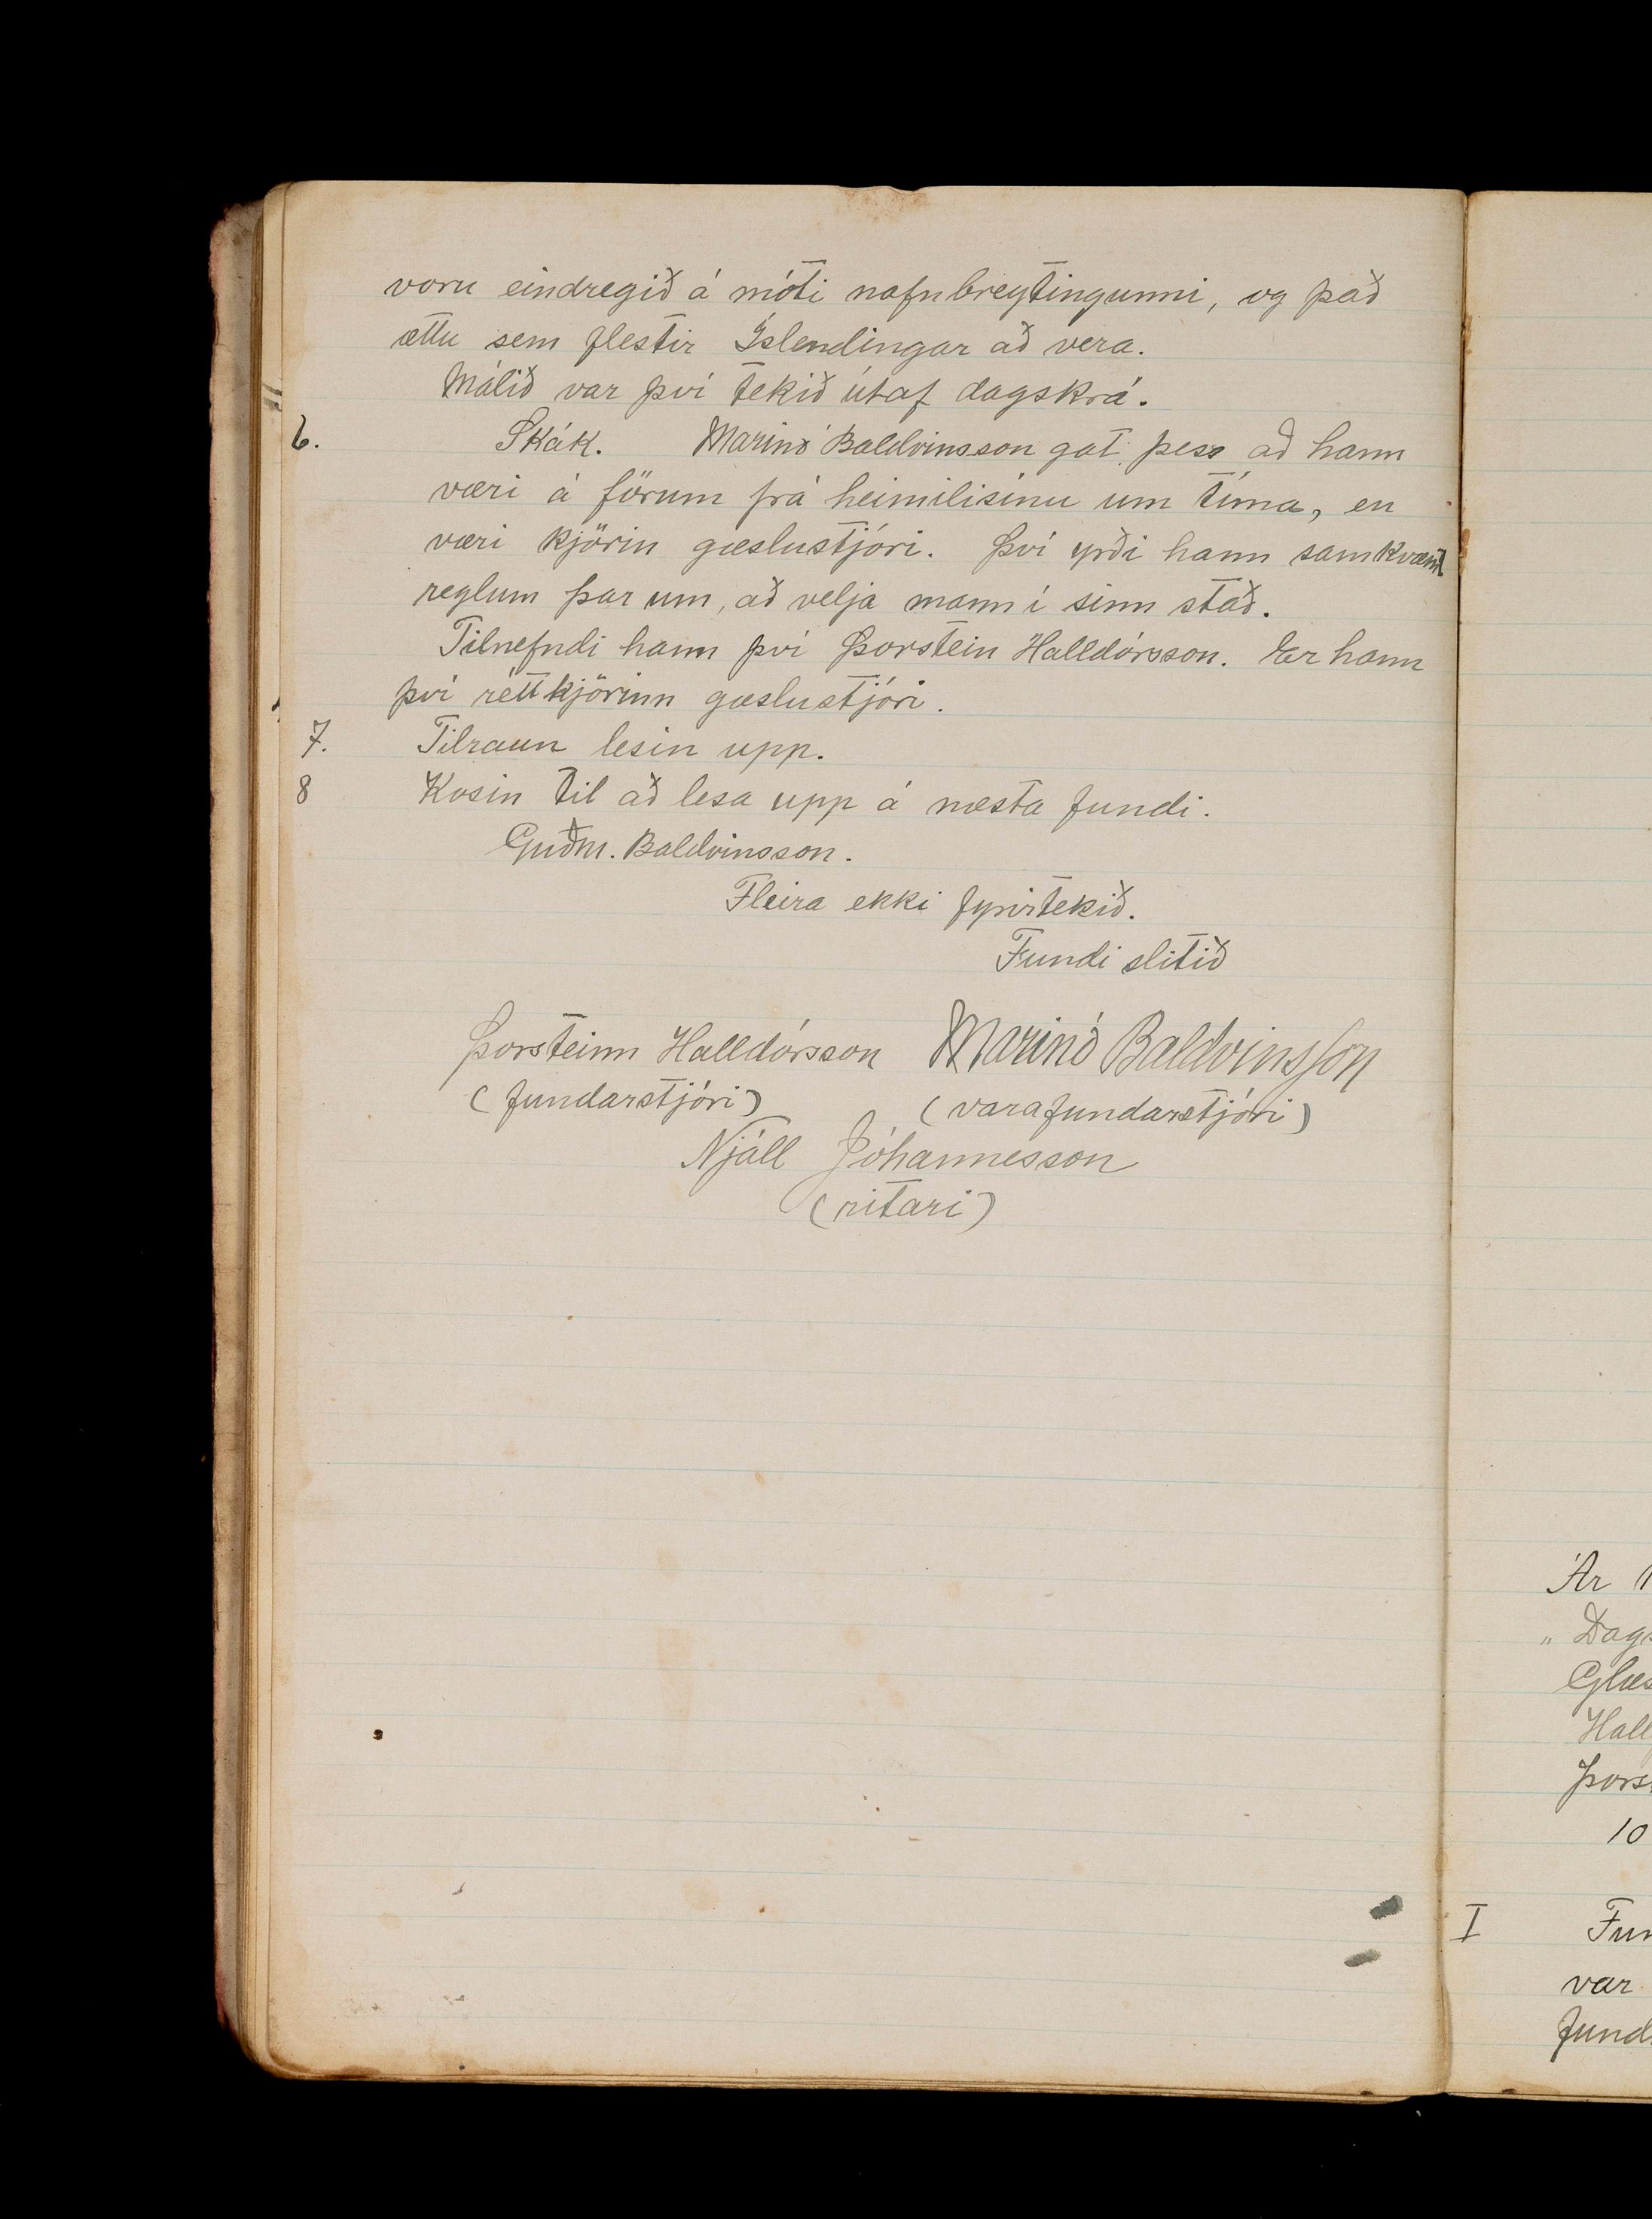 voru eindregið á móti nafnbreytingunni, og það
ættu sem flestir Íslendingar að vera.
Málið var því tekið útaf dagskrá.
6. Skák. Marinó Baldvinsson gat þess að hann
væri á förum frá heimilisínu um tíma, en
væri kjörin gæslustjóri. Því yrði hann samkvæmt
reglum þar um, að velja mann í sinn stað.
Tilnefndi hann því Þorstein Halldórsson. Er hann
því réttkjörinn gæslustjóri.
7. Tilraun lesin upp.
8 Kosin til að lesa upp á næsta fundi.
Guðm. Baldvinsson.
Fleira ekki fyrirtekið.
Fundi slitið
Þorsteinn Halldórsson Marinó Baldvinsson
(fundarstjóri) (varafundarstjóri)
Njáll Jóhannesson
(ritari)
Ár
„ Dags
Glæs
Hall
Þors
10
I Fun
var
fund